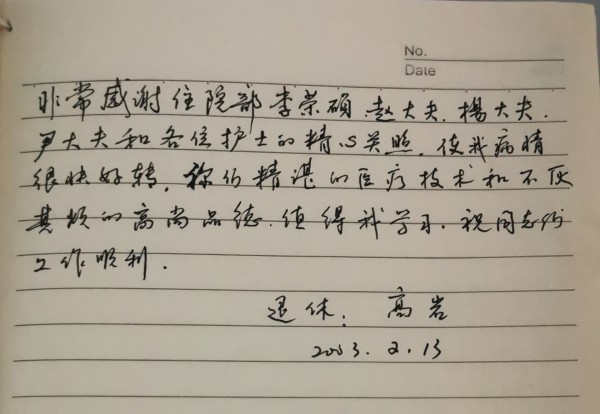 No.
Date
非常感谢住院部李荣硕、赵大夫、楊大夫、
尹大夫和各位护士的精心关照，使我病情
很快好转，称你精湛的医疗技术和不厌
其烦的高尚品德，值得我学习，祝同志们
工作顺利.
退休: 高岩
2023.2.13